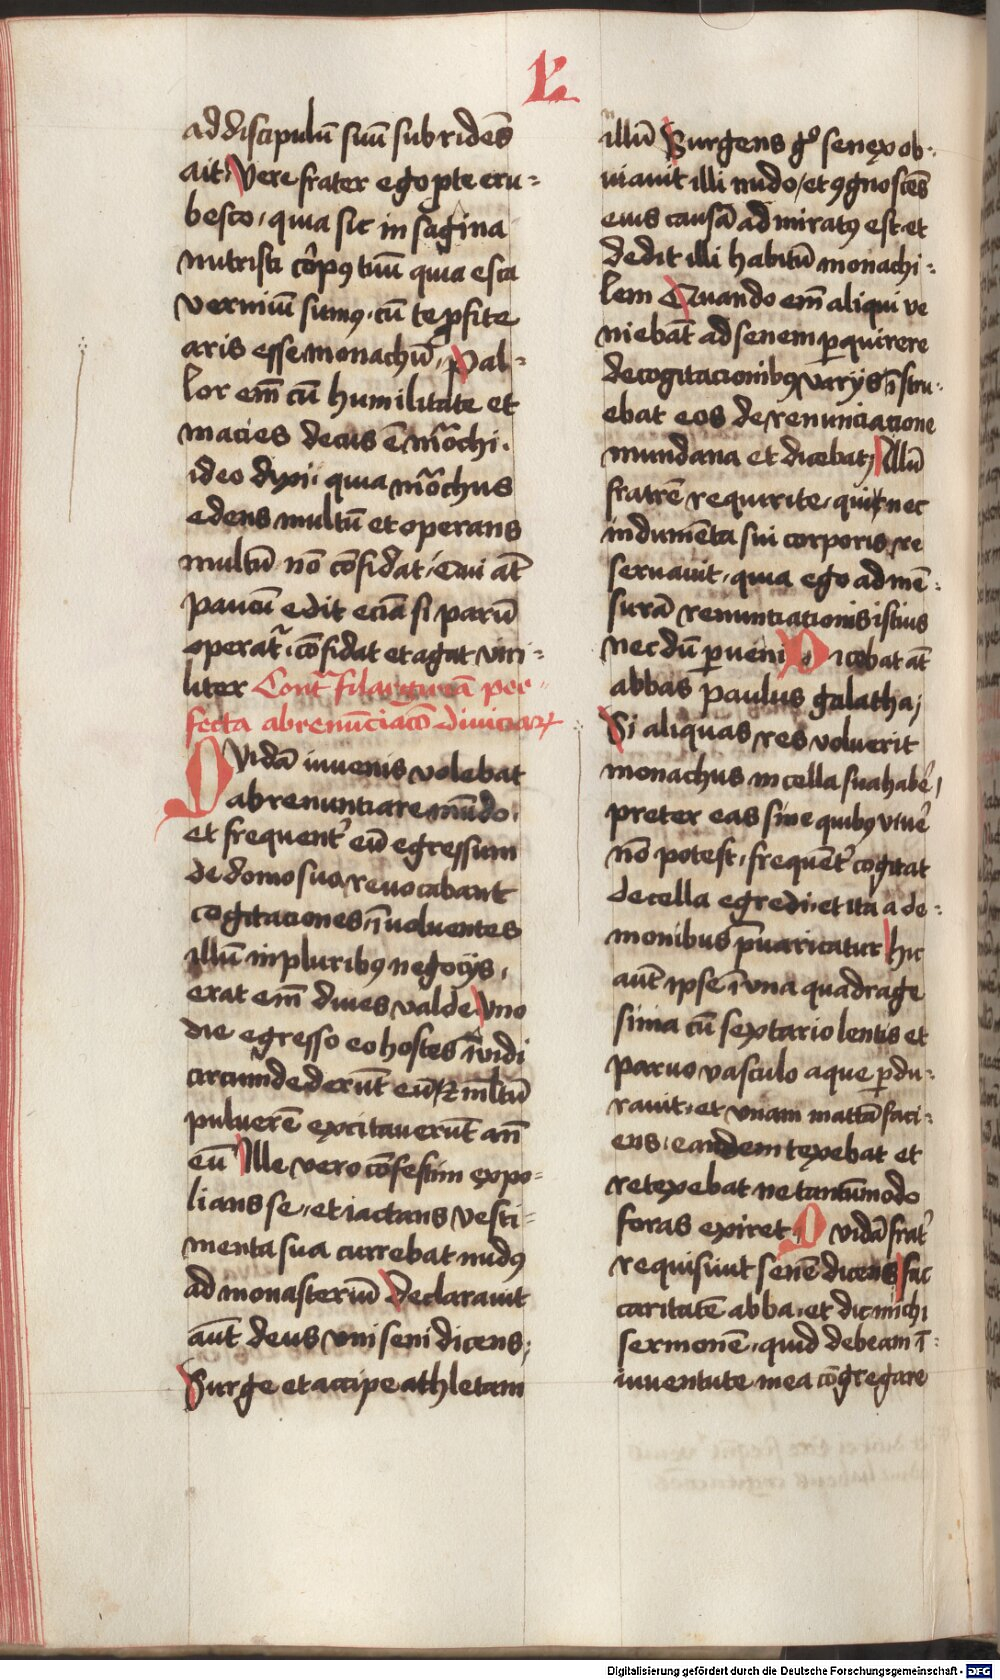 L
ad discipulū suū subridēs
ait Vere frater ego p te eru=
besco, quia sic in sagina
nutristi corp9 tuū quia esca
vermiū sum9, cū te p̱fite
aris esse monachū, Pal=
lor em̄ cū humilitate et
macies decus ē mo̅chi.
ideo dyxi, quia mo̅chus
edens multū et operans
multū nō cōfidat, Qui at̄
paucū edit eciā si parū
operat̄, cōfidat et agat viri=
liter Cont̄ filargiriā per=
fecta abrenūciacō diviciaꝝ
QVidā iuvenis volebat
abrenuntiare mūdo,
et frequent̄ eū egressum
de domo sua revocabant
cogitaciones, īvoluentes
illū in pluribꝰ negocijs,
erat em̄ dives valde Vno
die egresso eo hostes īvidi
circūdederūt eū et multū
pulverē excitaverūt an̄
eū Ille vero cōfestim expo=
lians se, et iactans vesti=
menta sua currebat nudꝰ
ad monasteriū Declaravit
aūt deus vni seni dicens,
Surge et accipe athletam
illū Surgens gº senex ob=
viavit illi nudo, et ꝯgnoscēs
eius causā admiratꝰ est et
dedit illi habitū monachi=
lem Quando em̄ aliqui ve
niebāt ad senem ꝑquirere
de cogitacionibꝰ varijs īstru=
ebat eos de renunciacione
mundana et dicebat, Illū
fratrē requirite, qui nec
indumēta sui corporis re
servavit, quia ego ad mē=
surā renuntiationis istius
nec dū ꝑveni Dicebat at̄
abbas paulus galatha,
Si aliquas res voluerit
monachus in cella sua habē,
preter eas sine quibꝰ vivē
nō potest, frequent̄ cogitat
de cella egredi, et ita a de=
monibus p̄varicatur hic
aūt ipse ī vna quadrage
sima cū sextario lentis et
parvo vasculo aque ꝑdu=
ravit, et vnam mattā faci=
ens, eandem texebat et
retexebat ne tantūmodo
foras exiret, QVidā frat̄
requisiuit senē dicens fac
caritatē abba, et dic michi
sermonē, quid debeam ī=
iuventute mea cōgregare
Digitalisierung gefördert durch die Deutsche Forschungsgemeinschaft - DFG